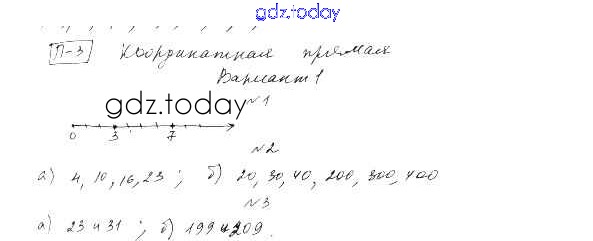 gdz.today
П-3 Координатная прямая
Вариант 1
№1
gdz.today
0 3 7
№2
а) 4, 10, 16, 23 ; б) 20, 30, 40, 200, 300, 400
№3
а) 23 и 31 ; б) 199 и 209.